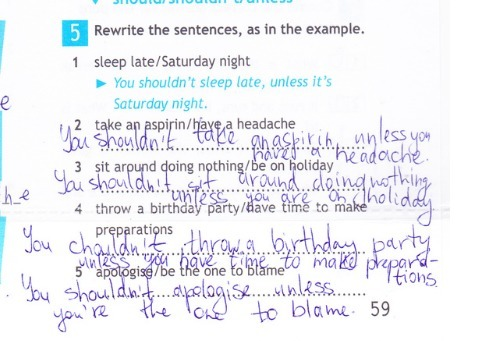 should/shouldn't/unless
5 Rewrite the sentences, as in the example.
1 sleep late/Saturday night
► You shouldn't sleep late, unless it's
Saturday night.
2 take an aspirin/have a headache
You shouldn't take an aspirin, unless you
have a headache.
3 sit around doing nothing/be on holiday
You shouldn't sit around doing nothing
unless you are on holiday
4 throw a birthday party/have time to make
preparations
You chouldn't throw a birthday party
unless you have time to make prepara-
tions
5 apologise/be the one to blame
You shouldn't apologise unless
you're the one to blame.
59